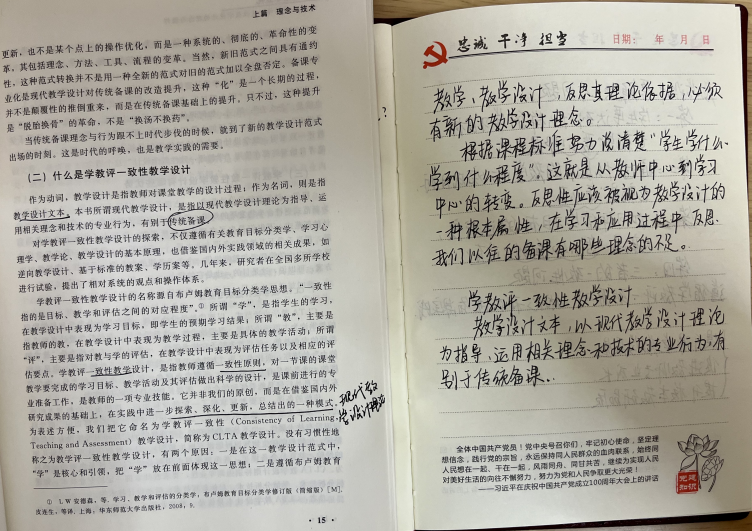 上篇 理念与技术
更新，也不是某个点上的操作优化，而是一种系统的、彻底的、革命性的变
革，其包括理念、方法、工具、流程的变革。当然，新旧范式之间具有通约
性，这种范式转换并不是用一种全新的范式对旧的范式加以全盘否定。备课专
业化是现代教学设计对传统备课的改造提升，这种“化”是一个长期的过程，
并不是颠覆性的推倒重来，而是在传统备课基础上的提升。只不过，这种提升
是“脱胎换骨”的革命，不是“换汤不换药”。
当传统备课理念与行为跟不上时代步伐的时候，就到了新的教学设计范式
出场的时刻。这是时代的呼唤，也是教学实践的需要。
（二）什么是学教评一致性教学设计
作为动词，教学设计是指教师对课堂教学的设计过程；作为名词，则是指
教学设计文本。本书所谓现代教学设计，是指以现代教学设计理论为指导、运
用相关理念和技术的专业行为，有别于传统备课。
对学教评一致性教学设计的探索，不仅遵循有关教育目标分类学、学习心
理学、教学论、教学设计的基本原理，也借鉴国内外实践领域的相关成果，如
逆向教学设计、基于标准的教案、学历案等。几年来，研究者在全国多所学校
进行试验，提出了相对系统的观点和操作体系。
学教评一致性教学设计的名称源自布卢姆教育目标分类学思想。“一致性
指的是目标、教学和评估之间的对应程度”。①所谓“学”，是指学生的学习，
在教学设计中表现为学习目标，即学生的预期学习结果；所谓“教”，主要是
指教师的教，在教学设计中表现为教学过程，主要是具体的教学活动；所谓
“评”，主要是指对教与学的评估，在教学设计中表现为评估任务以及相应的评
估要点。学教评一致性教学设计，是指教师遵循一致性原则，对一节课的课堂
教学要完成的学习目标、教学活动及其评估做出科学的设计，是课前进行的专
业准备工作，是教师的一项专业技能。它并非我们的原创，而是在借鉴国内外
研究成果的基础上，在实践中进一步探索、深化、更新，总结出的一种模式。
为表述方便，我们把它命名为学教评一致性（Consistency of Learning,
Teaching and Assessment）教学设计，简称为CLTA教学设计。没有习惯性地
称之为教学评一致性教学设计，有两个原因：一是在这一教学设计范式中，
“学”是核心和引领，把“学”放在前面体现这一思想；二是遵循布卢姆教育
① L W 安德森，等. 学习、教学和评估的分类学：布卢姆教育目标分类学修订版（简缩版）[M].
皮连生，等译. 上海：华东师范大学出版社，2008：9.
· 15 ·
现代教
学设计理论
忠诚 干净 担当
日期： 年 月 日
教学、教学设计，反思其理论依据，必须
有新的教学设计理念。
根据课程标准努力说清楚“学生学什么
学到什么程度”。这就是从教师中心到学习
中心的转变。反思性应该被视为教学设计的
一种根本属性，在学习和应用过程中反思
我们以往的备课有哪些理念的不足。
学教评一致性教学设计
教学设计文本，以现代教学设计理论
为指导、运用相关理念和技术的专业行为，有
别于传统备课。
全体中国共产党员！党中央号召你们，牢记初心使命，坚定理
想信念，践行党的宗旨，永远保持同人民群众的血肉联系，始终同
人民想在一起、干在一起，风雨同舟、同甘共苦，继续为实现人民
对美好生活的向往不懈努力，努力为党和人民争取更大光荣！
——习近平在庆祝中国共产党成立100周年大会上的讲话
党建
知识